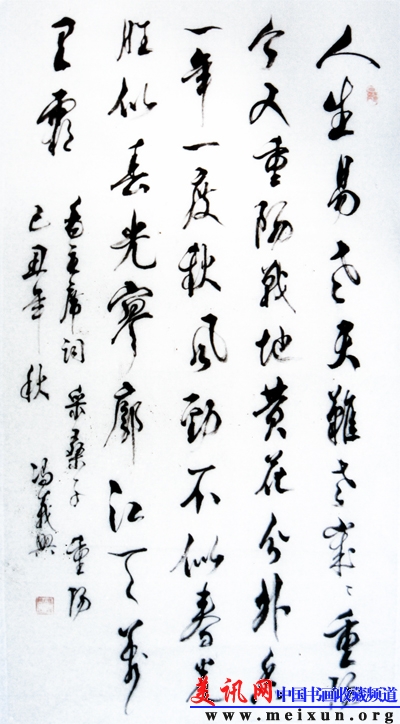 人生易老天難老歲々重陽
今又重陽戰地黃花分外香
一年一度秋風勁不似春光
勝似春光寥廓江天萬
里霜
毛主席词采桑子重陽
己丑年秋 馮義興
美讯网 中国书画收藏频道
www.meixun.org